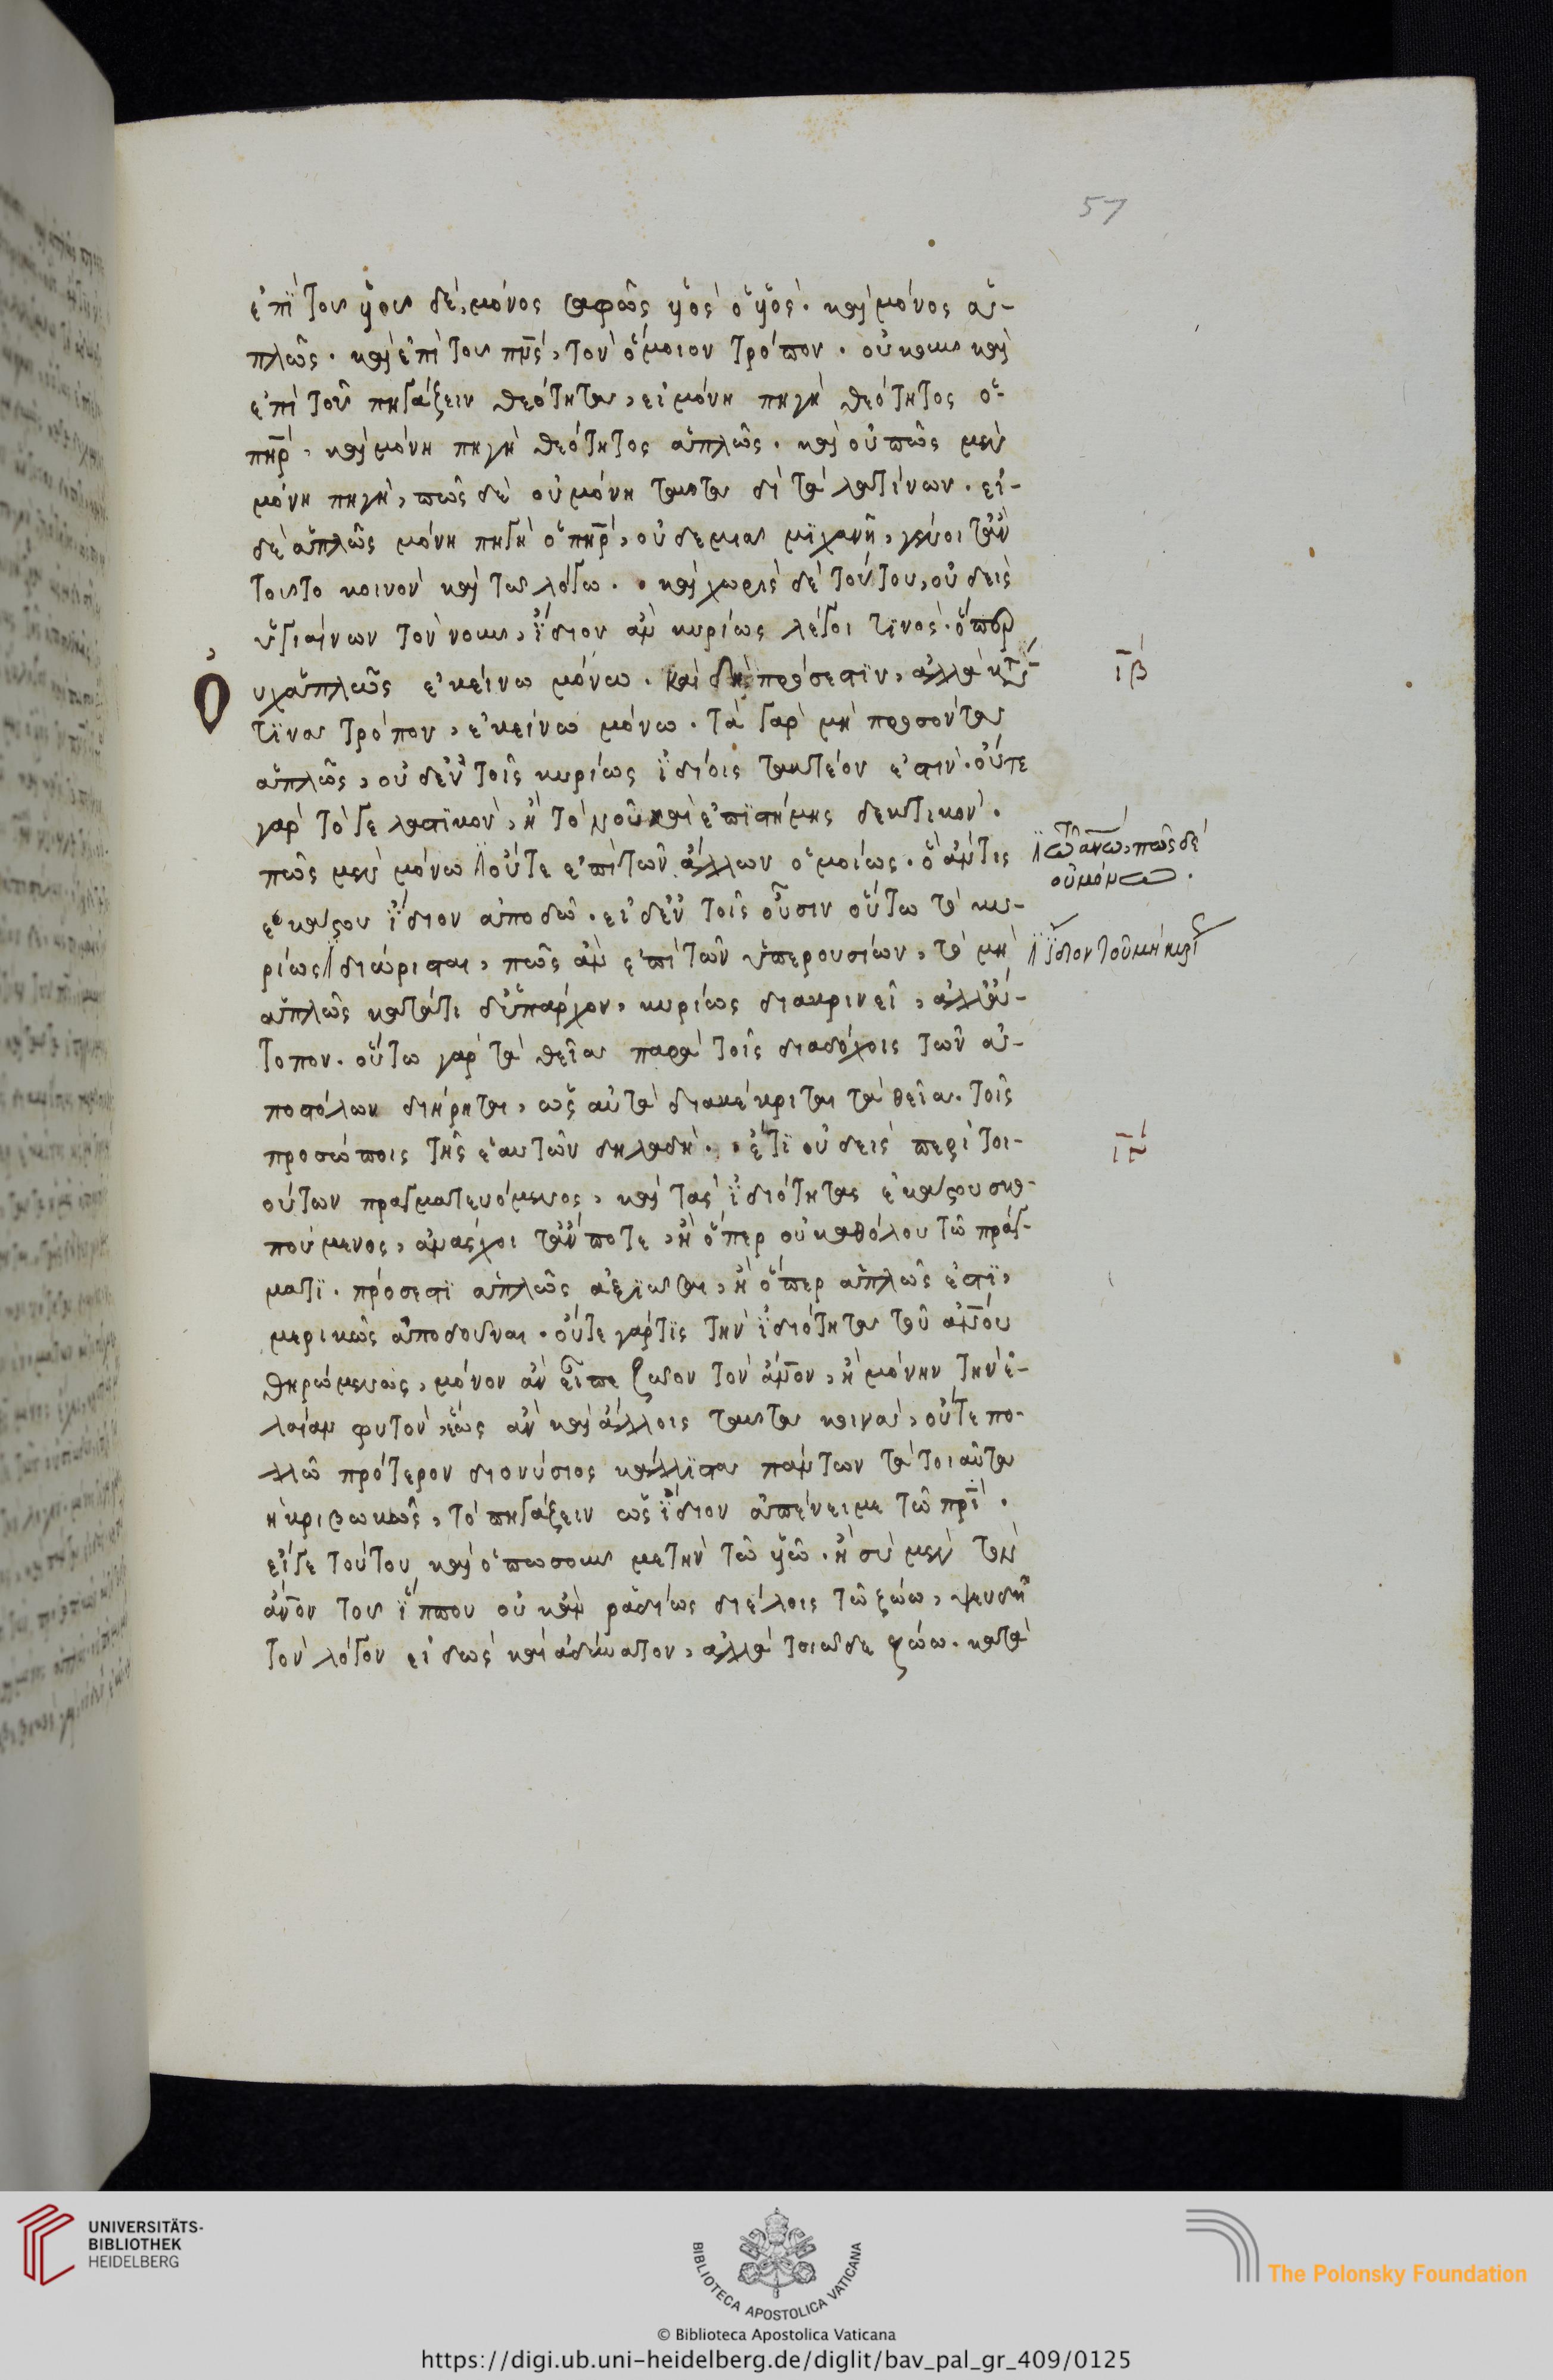 57
ἐπῒ τοῦ ὑ̈οῦ δὲ, μόνος σαφῶς ὑ̈ὸς ὁ ὑ̈ός· καὶ μόνος ἁ-
πλῶς· καὶ ἐπὶ τοῦ πν̅ς, τὸν ὅμοιον τρόπον· οὐκοῦν καὶ
ἐπὶ τοῦ πηγάζειν θεότητα, εἰ μόνη πηγὴ θεότητος ὁ
πη̅ρ, καὶ μόνη πηγὴ θεότητος ἁπλῶς· καὶ οὐ πῶς μὲν
μόνη πηγὴ, πῶς δὲ οὐ μόνη ταῦτα δὴ τὰ λατίνων· εἰ
δὲ ἁπλῶς μόνη πηγὴ ὁ πη̅ρ, οὐδεμιᾶ μϊχανῆ, γένοιτ᾽ ἂν
τοῦτο κοινὸν καὶ τῶ λόγω· καὶ χωρὶς δὲ τούτου, οὐδεὶς
ὑγιαίνων τὸν νοῦν, ἴ̈διον ἂν κυρίως λέγοι τϊνὸς· ὅπερ
Οὐχ ἁπλῶς ἐκείνω μόνω· καὶ δὴ πρόσεστϊν, ἀλλὰ κτ̅
τϊνα τρόπον, ἐκείνω μόνω· τὰ γὰρ μὴ προσόντα
ἁπλῶς, οὐδ᾽ ἐν τοῖς κυρίως ἰ̈δίοις τακτέον ἐστὶν· οὔτε
γὰρ τὸ γελαστϊκὸν, ἢ τὸ νοῦ καὶ ἐπϊστήμης δεκτικὸν·
πῶς μὲν μόνω οὔτε ἐπὶ τῶν ἄλλων ὁμοίως· ὃ ἄν τις
ἑκάστου ἴ̈διον ἀποδῶ· εἰ δ᾽ ἐν τοῖς οὖσιν οὕτω τὸ κυ-
ρίως διώρισται, πῶς ἂν ἐπὶ τῶν ὑπερουσίων, τὸ μὴ
ἁπλῶς κατάτι δ᾽ ὑπάρχον, κυρίως διακρινεῖ, ἀλλ᾽ ἄ-
τοπον· οὕτω γὰρ τὰ θεῖα παρὰ τοῖς διαδόχοις τῶν ἀ-
ποστόλων διήρηται, ὡς αὐτὰ διακέκριται τὰ θεῖα. τοῖς
προσώποις τῆς ἑαυτῶν δηλαδὴ· ἔτϊ οὐδεὶς περὶ τοι-
ούτων πραγματευόμενος, καὶ τὰς ἰ̈διότητας ἑκάστου σκο-
πούμενος, ἀνάσχοιτ᾽ ἄν ποτε, ἢ ὅπερ οὐ καθόλου τῶ πράγ-
ματϊ· πρόσεστϊ ἁπλῶς ἀξιῶσαι, ἢ ὅπερ ἁπλῶς ἐστϊ,
μερικῶς ἀποδοῦναι· οὔτε γάρ τϊς τὴν ἰ̈διότητα τοῦ ἀν̅ου
θηρώμενος, μόνον ἂν εἶπε ζῶον τὸν ἄν̅ον, ἢ μόνην τὴν ἐ-
λαίαν φυτὸν, ἕως ἂν καὶ ἄλλοις ταῦτα κοινὰ, οὔτε πο-
λλῶ πρότερον διονύσιος κάλλϊστα πάντων τὰ τοιαῦτα
ἠκριβωκὼς, τὸ πηγάζειν ὡς ἴ̈διον ἀπένειμε τῶ πρ̅ι·
εἴγε τούτου καὶ ὁπωσοῦν μετῆν τῶ ὑ̈ῶ· ἢ σὺ μὲν τὸν
ἄν̅ον τοῦ ἵ̈ππου οὐκ ἂν ῥαδίως διέλοις τῶ ζώω, ψευδῆ
τὸν λόγον εἰδὼς καὶ ἀδύνατον, ἀλλὰ τοιῶδε ζώω· κατὰ
ιβ
τῶ ἀν̅ω, πῶς δὲ
οὐ μόνω.
ἴ̈διον τοῦ μὴ κυρί
ιγ
UNIVERSITÄTS-
BIBLIOTHEK
HEIDELBERG
BIBLIOTECA APOSTOLICA VATICANA
The Polonsky Foundation
© Biblioteca Apostolica Vaticana
https://digi.ub.uni-heidelberg.de/diglit/bav_pal_gr_409/0125